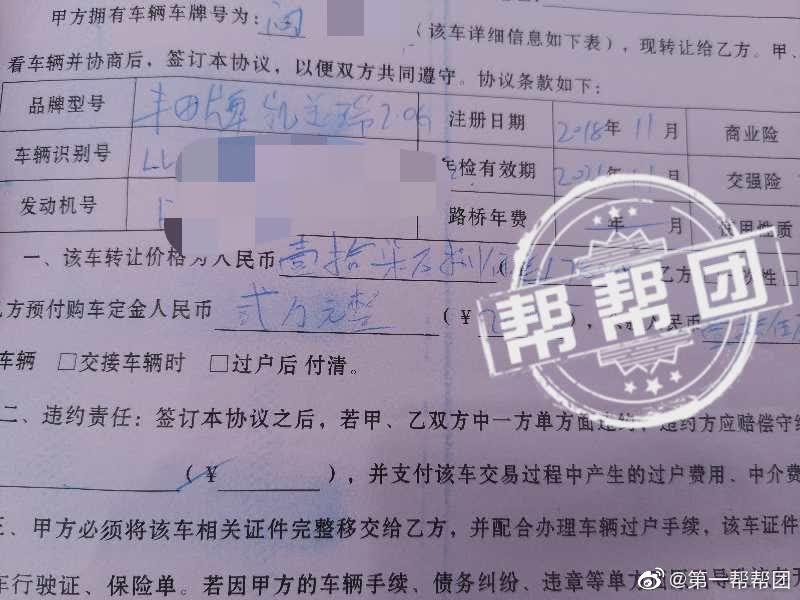 甲方拥有车辆车牌号为：闽
（该车详细信息如下表），现转让给乙方。甲、
看车辆并协商后，签订本协议，以便双方共同遵守。协议条款如下：
品牌型号 丰田牌凯美瑞2.0G 注册日期 2018年11月 商业险
车辆识别号 LV 年检有效期 年11月 交强险
发动机号 路桥年费 年 月 使用性质
一、该车转让价格为人民币 壹拾柒万捌仟 乙方 性□
乙方预付购车定金人民币 贰万元整 （￥2 ），人民币
车辆 □交接车辆时 □过户后 付清。
二、违约责任：签订本协议之后，若甲、乙双方中一方单方面违约，违约方应赔偿守约
（￥ ），并支付该车交易过程中产生的过户费用、中介费
三、甲方必须将该车相关证件完整移交给乙方，并配合办理车辆过户手续，该车证件
车行驶证、保险单。若因甲方的车辆手续、债务纠纷、违章等单方
帮帮团
@第一帮帮团